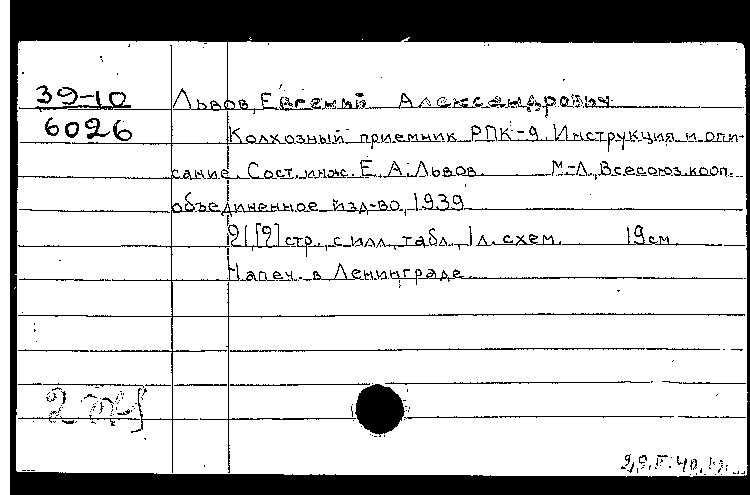 39-10
6026
Львов, Евгений Александрович.
Колхозный приемник РПК-9. Инструкция и опи-
сание. Сост. инж. Е. А. Львов. М.-Л., Всесоюз. кооп.
объединенное изд-во, 1939
21, [2] стр., с илл., табл., 1 л. схем. 19 см.
Напеч. в Ленинграде.